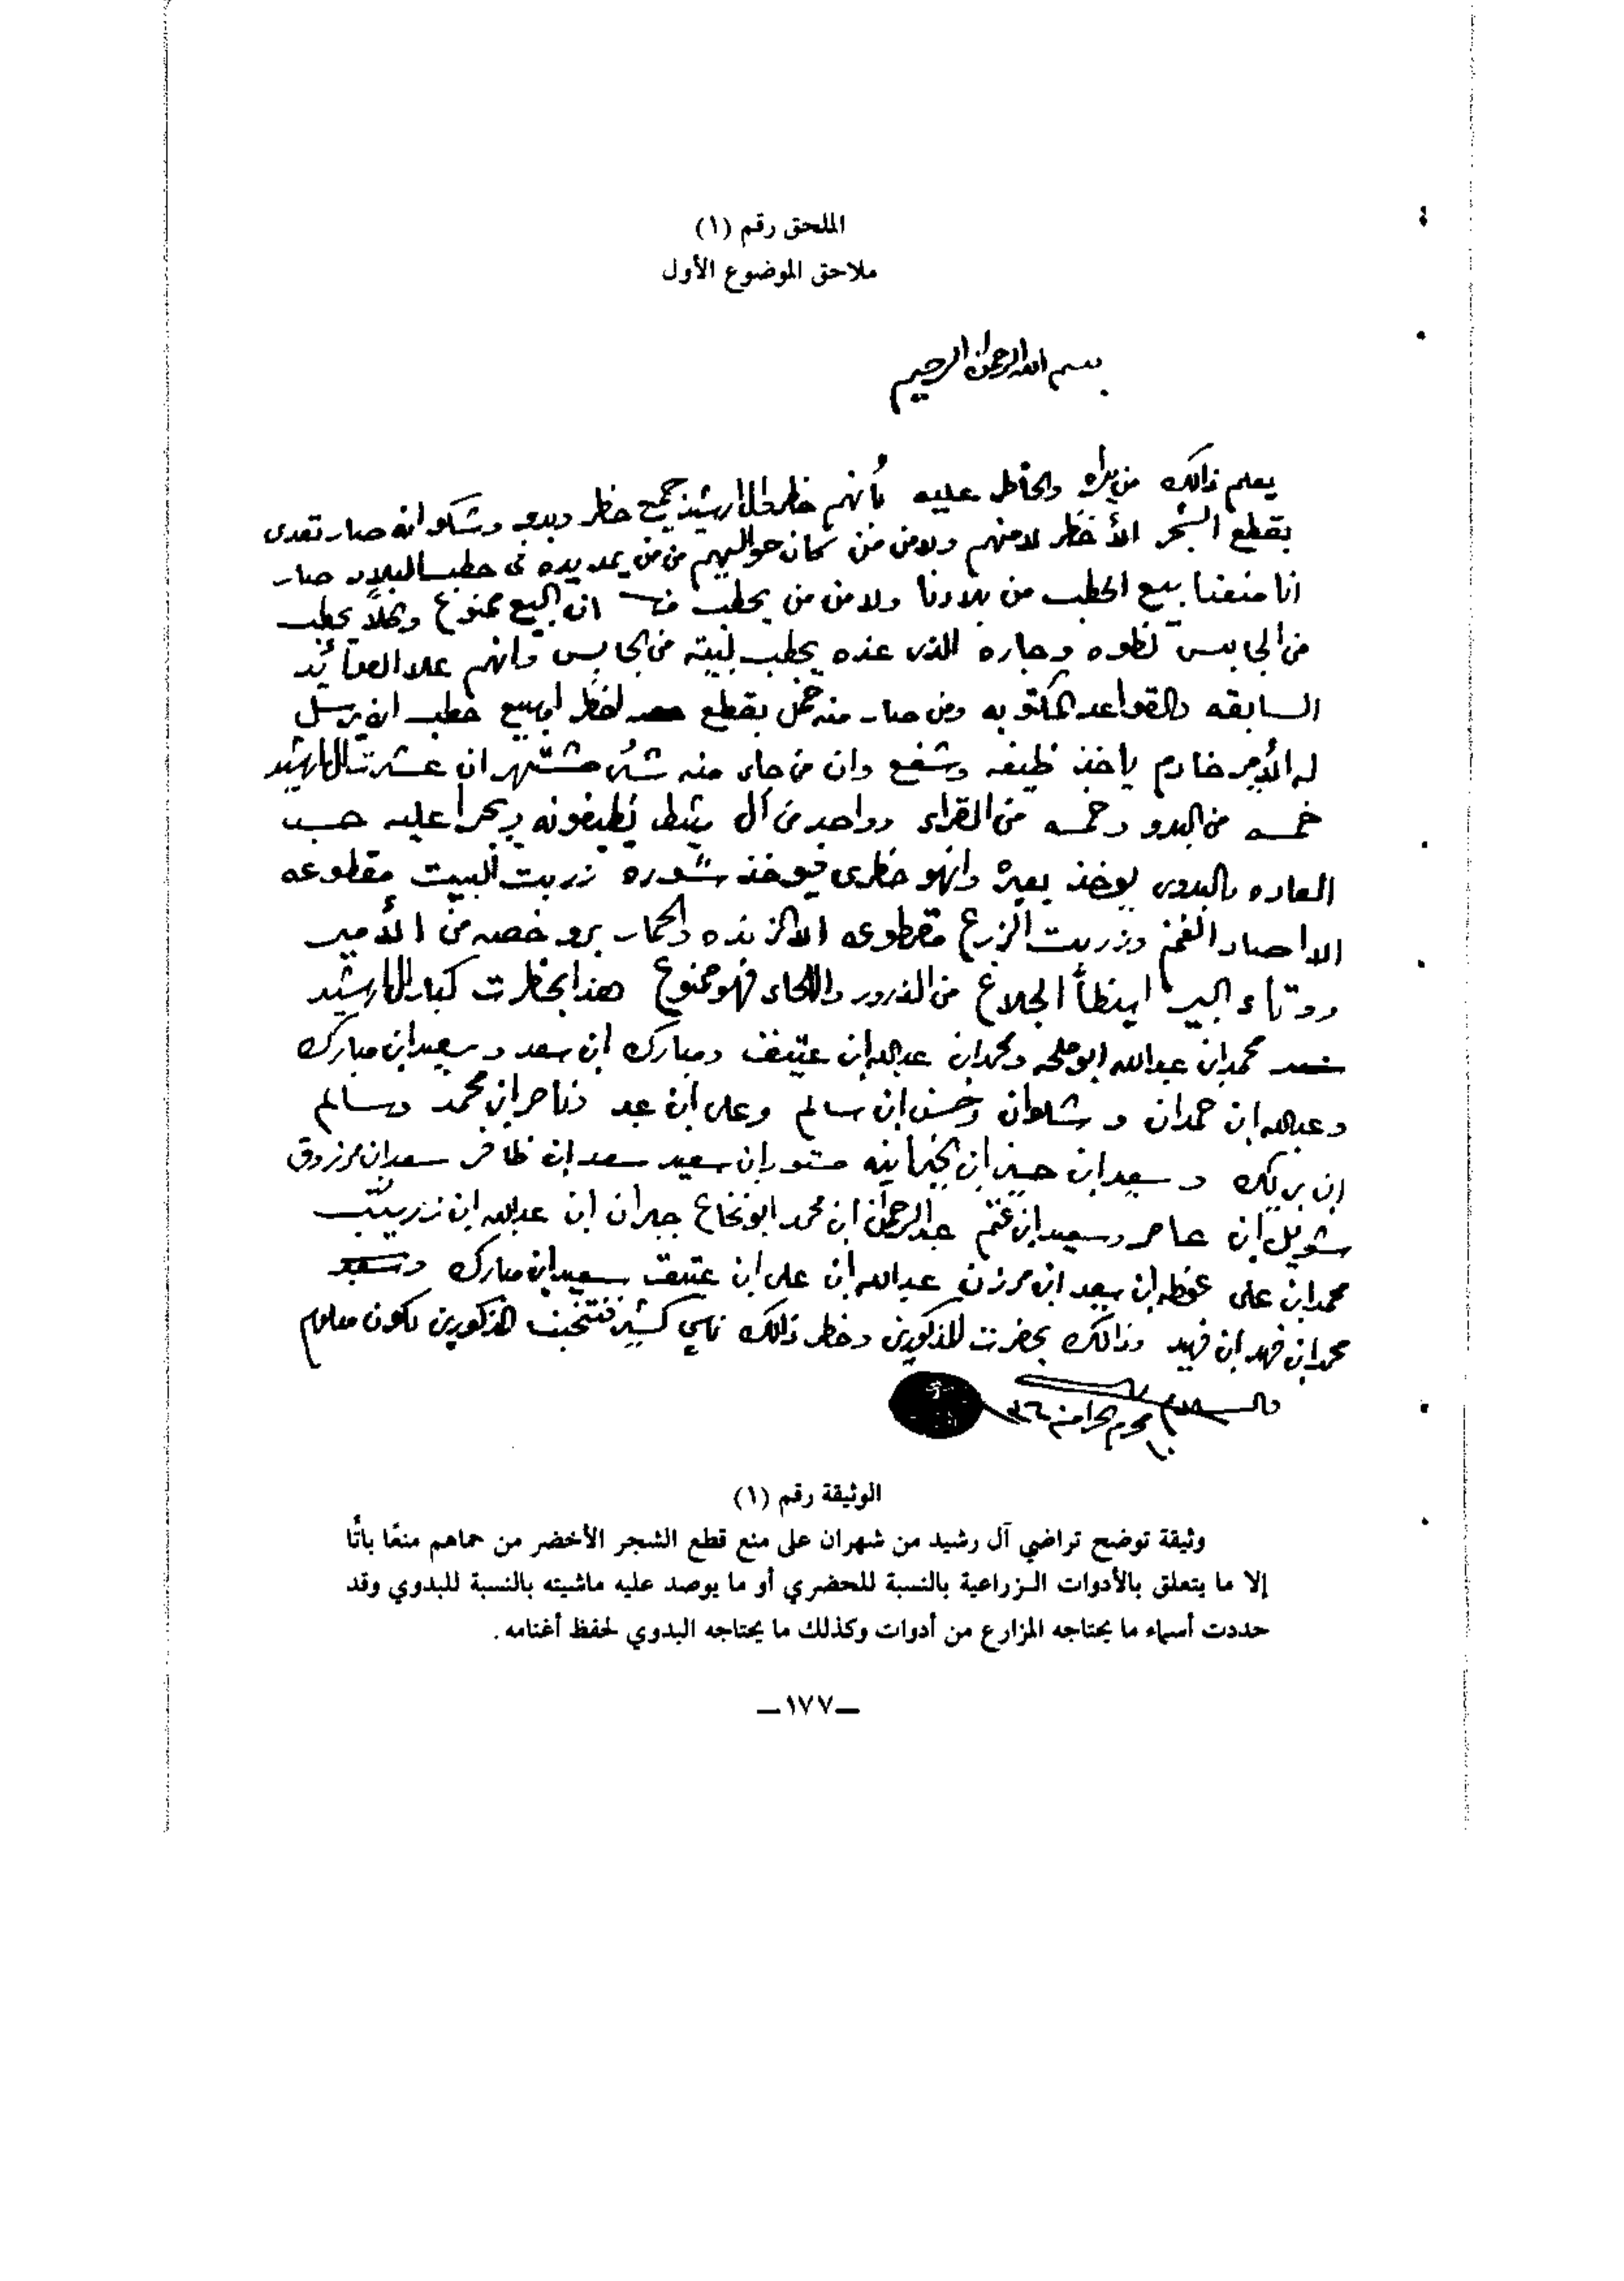 الملحق رقم (١)
ملاحق الموضوع الأول
بسم الله الرحمن الرحيم
يعلم ذالك من يراه والحاظر عليه بأنهم خظروا ال ارشيد جميع حظر وبدو وشكو انه صار تعدى
بقطع الشجر الأخظر لا منهم ولا من من كان حواليهم من من يمد يده في حطب البلاد صار
انا منعنا بيع الحطب من بلادنا ولا من من يحطب ان البيع ممنوع يحطب
من اليابس وجاره الذى عنده يحطب لبيته من اليابس وانهم علا العوائد
السابقه والقواعد المكتوبه ومن صار منه بقطع لخظر او بيع حطب ان يرسل
له الأمير خادم ياخذ ظيفه وشفع وان من جاء منه شئ مشتهر ان عشرت ال ارشيد
خمسه من البدو وخمسه من القراء وواحد من آل يظيفونه ويجرا عليه حسب
العاده بالبدوى يوخذ بعيره وانهو حظرى فيوخذ ثوره زربت البيت مقطوعه
الا اصار الغنم وزربت الزرع مقطوعه الا الزنده والحمار برو خصه من الأمير
البير ايظأ من واللحاء فهو ممنوع هذا بحظرت كبار ال ارشيد
محمد ابن عبدالله ابو ملحه ومحمد ابن عبدالله ابن عتيق ومبارك ابن سعد وسعيد ابن مبارك
وعبدالله ابن حمدان و شلوان وحسن ابن سالم وعلى ابن عبد وناصر ابن محمد وسالم
ابن بريك وسعيد ابن حسين ابن مستور ابن سعيد سعد ابن ظافر سعد ابن مرزوق
شويل ابن عامر وسعيد ابن غنم عبدالرحمن ابن محمد ابو نخاع جبران ابن عبدالله ابن زريب
محمد ابن على ابن سعد ابن مرزن عبدالله ابن على ابن عتيق سعيد ابن مبارك وسعيد
محمد ابن فهد ابن فهيد وذالك بحضرت المذكورين وحظر ذالك ناس كثير المذكورين يكون معلوم
والسلام
١٠ محرم الحرام سنه
الوثيقة رقم (١)
وثيقة توضح تراضي آل رشيد من شهران على منع قطع الشجر الأخضر من حماهم منعًا باتًا
إلا ما يتعلق بالأدوات الزراعية بالنسبة للحضري أو ما يوصد عليه ماشيته بالنسبة للبدوي وقد
حددت أسماء ما يحتاجه المزارع من أدوات وكذلك ما يحتاجه البدوي لحفظ أغنامه.
ـ١٧٧ـ